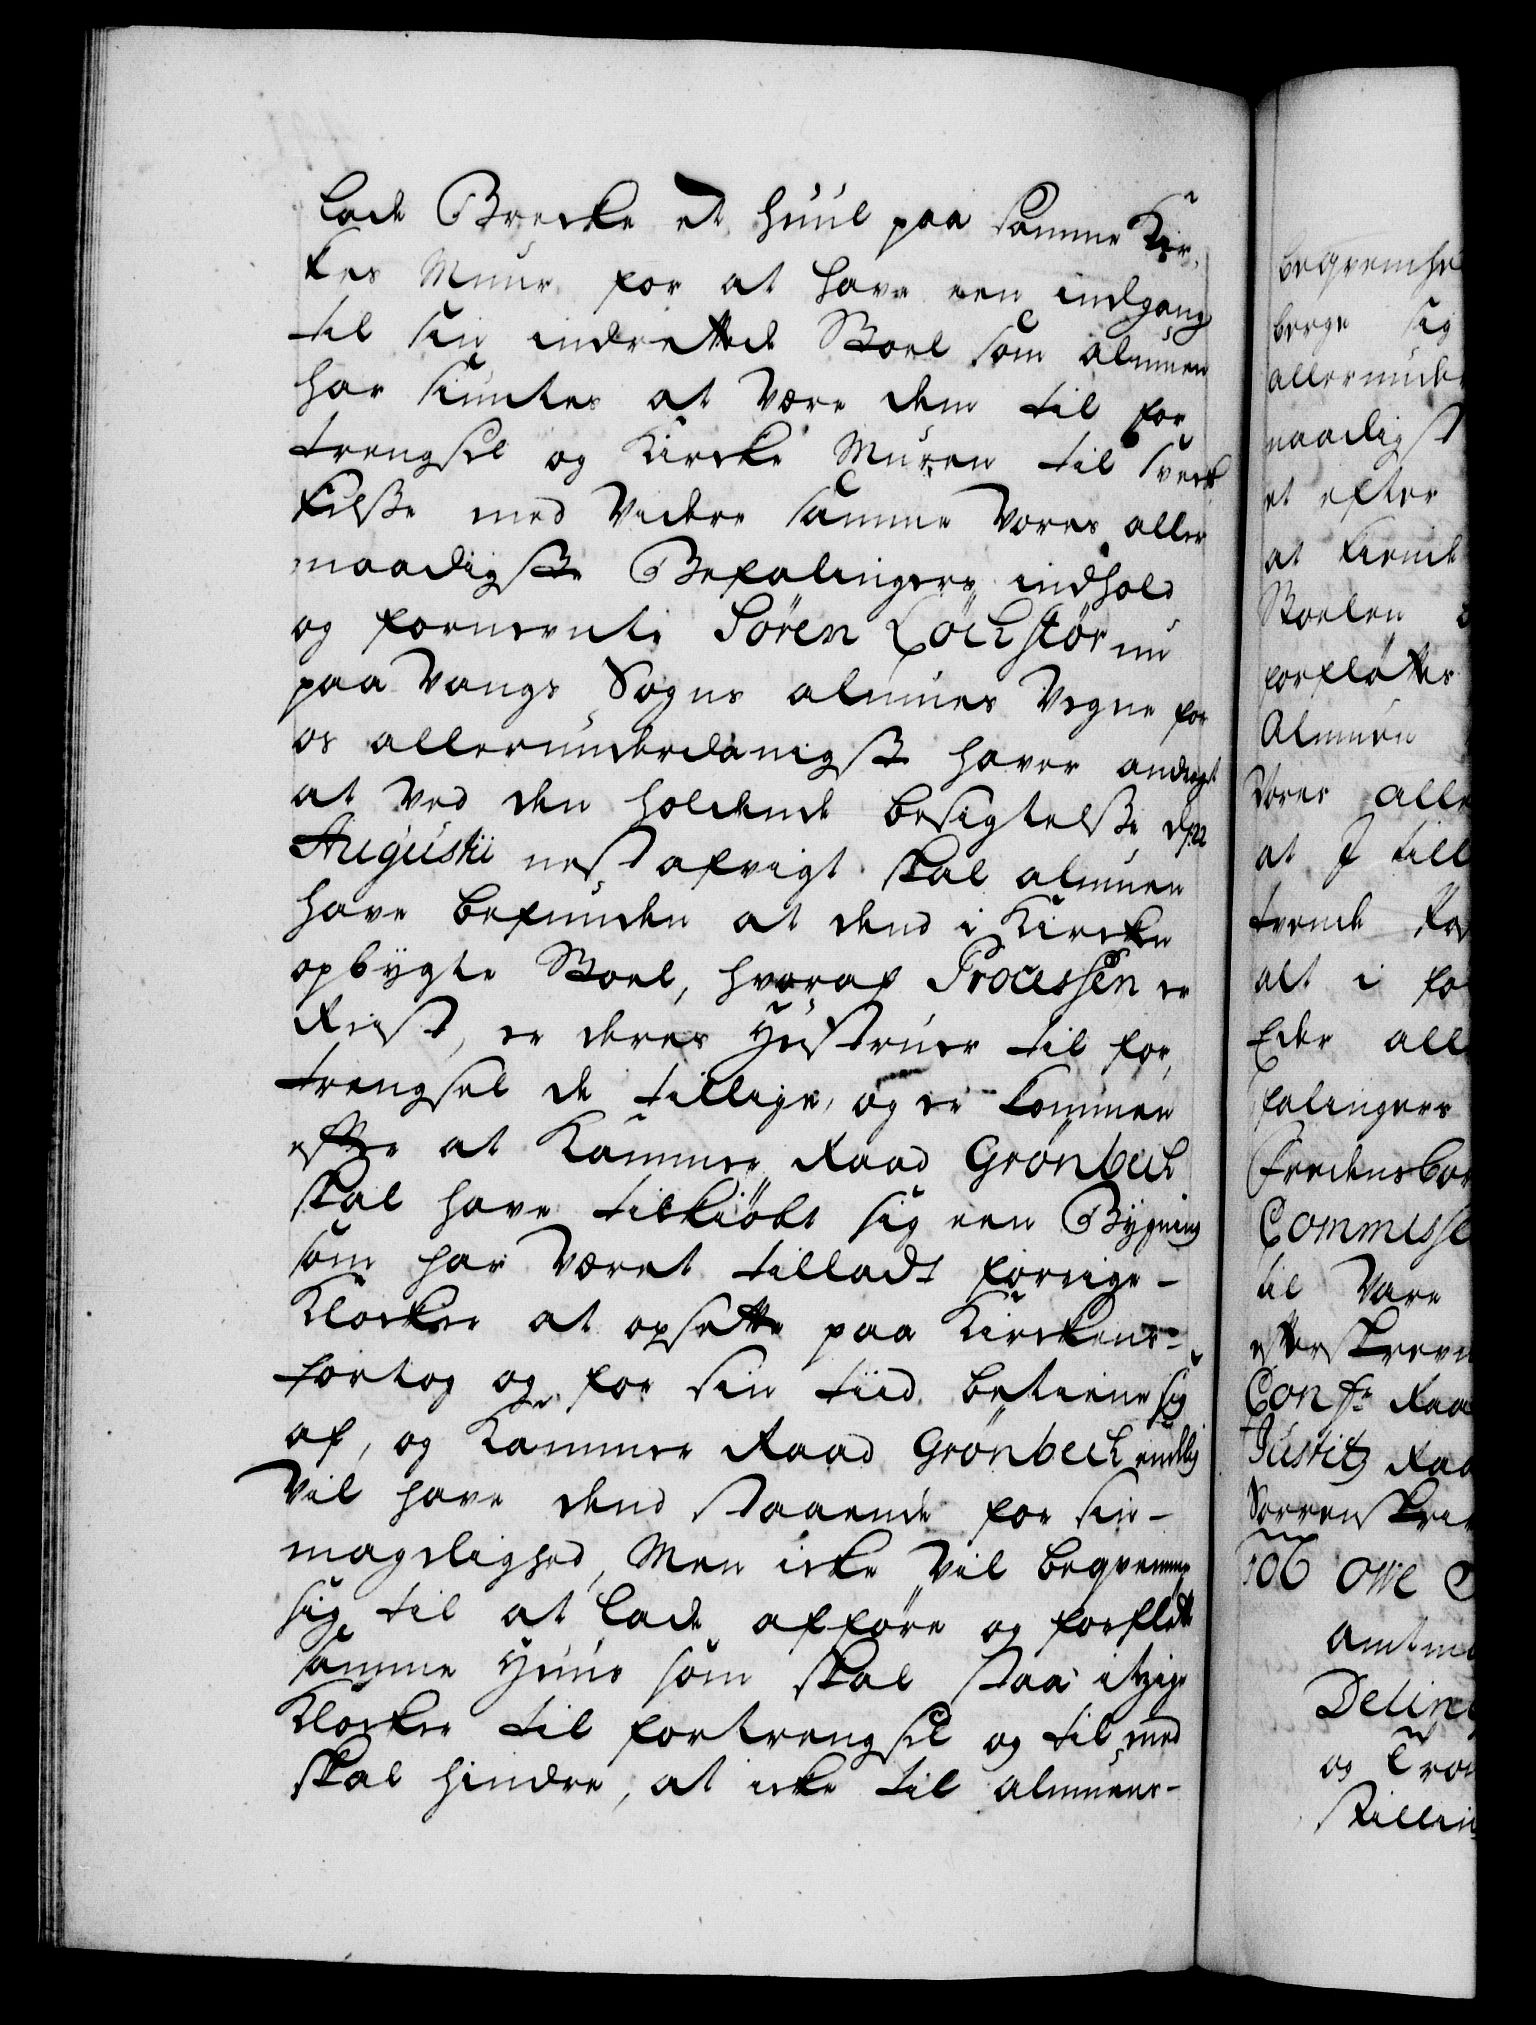 lade Brecke et huul paa samme Kir,
kes Muur for at have een indgang
til sin indrettede Stoel som almuen
har siuntes at være dem til for
trengsel og Kircke Muren til sveck
kelsse med videre samme vores aller
naadigste Befalingers indhold
og fornevnte Sören Löchstör nu
paa Vangs Sogns almues Vegne for
os allerunderdanigst haver andraget
at ved den holdende besigtelsse d: 22
Augustii nest afvigt skal almuen
have befunden at dend i Kircken
opbygte Stoel, hvoraf Processen er
Reist, er deres Hustruer til for,
trengsel de tillige, og er kommen
efter at Kammer Raad Grönbech
skal have tilkiöbt sig een Bygning
som har været tilladt forrige
Klocker at opsette paa Kirckens
fortog og for sin tiid betiene sig
af, og Kammer Raad Grönbech endelig
vil have dend staaende for sin
magelighed, Men icke vil beqvemme
sig til at lade afföre og forflötte
samme Huus som skal staa itzige
Klocker til fortrengsel og til med
skal hindre, at icke til almuens
beqvemhe
berge sig
allerunde
naadigst
et efter
at kiende
Stoelen
forflöttes
Almuen
Vores alle
at I till
tvende
alt i fo
Eder alle
falingers
Fredensbor
Commisse
til Vare
efterskreve
Conf: Raa
Justitz Raa
Sorenskri
106 Owe
Amtm
og Tron